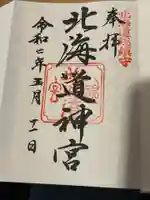 奉拝
北海道神宮
令和七年五月十一日